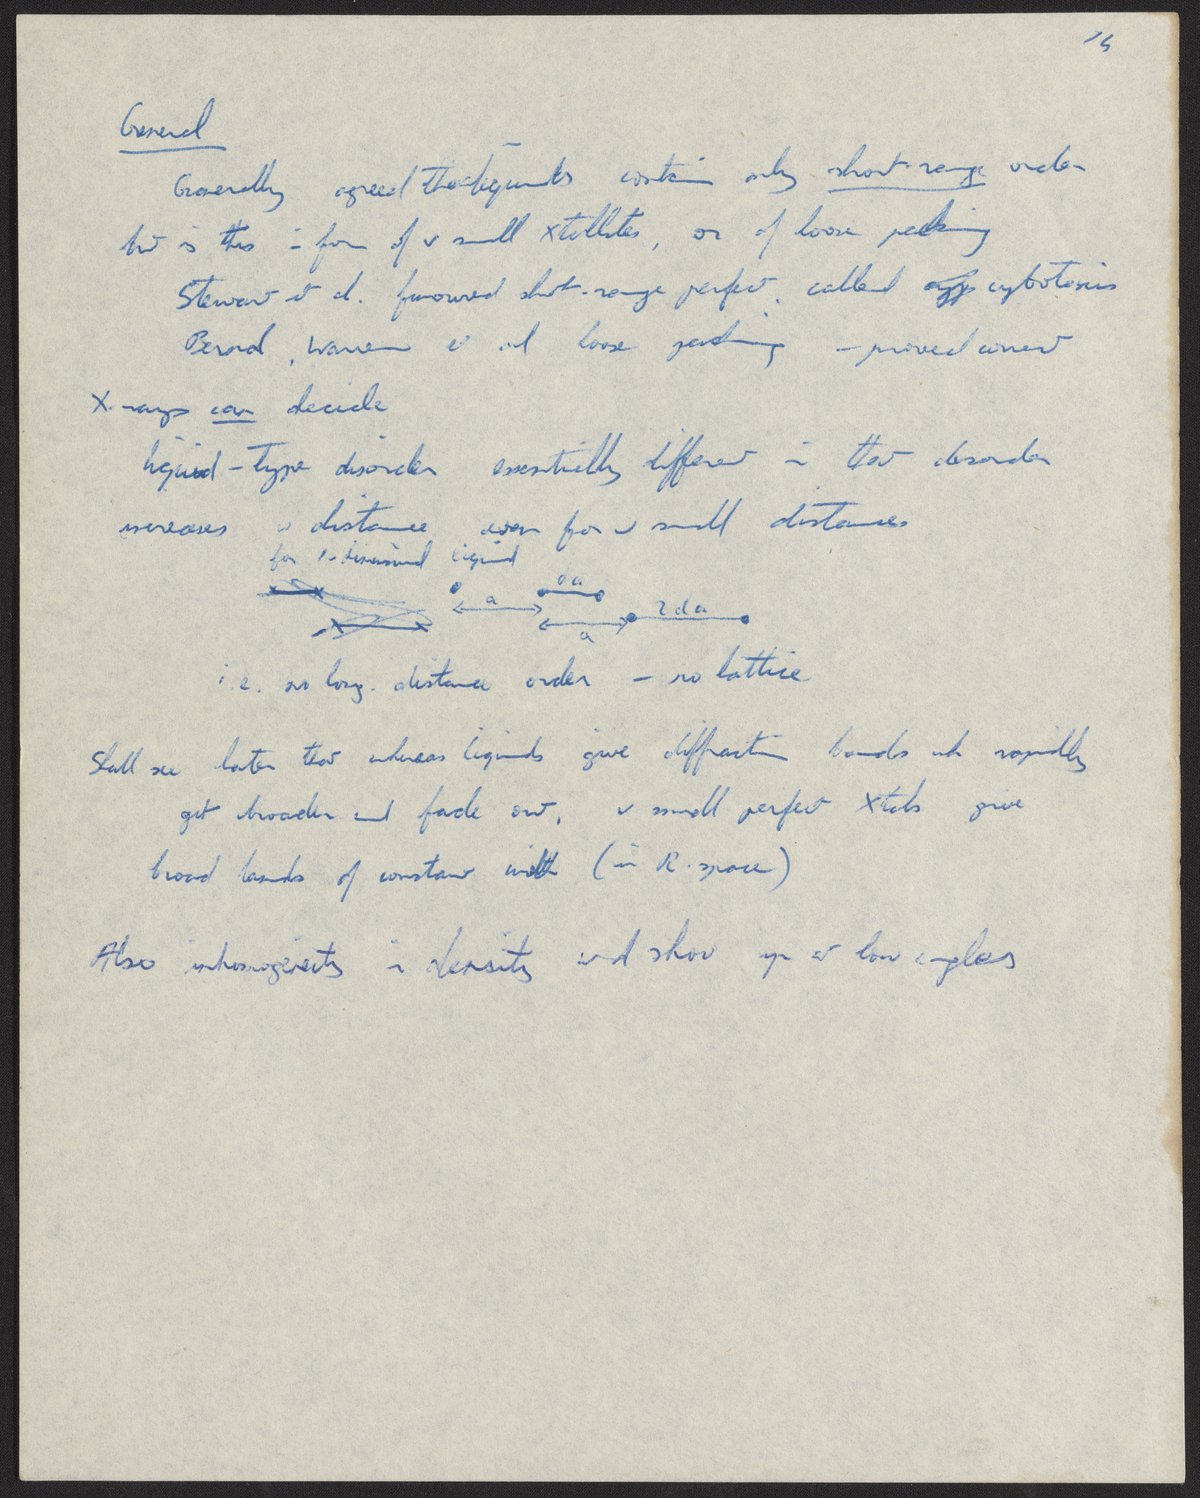 General
Generally agreed that liquids contain only short-range order
but is this in form of v small xtallites, or of loose packing
Stewart et al. favoured short-range perfect, called cybotaxis
Bernal, Warren et al loose packing – proved correct
X-rays can decide
liquid-type disorder essentially different in that disorder
increases w distance even for v small distances
for 1-dimensional liquid
a da
a 2da
i.e. no long-distance order – no lattice
Shall see later that whereas liquids give diffraction bands wh rapidly
get broader and fade out, v small perfect xtals give
broad bands of constant width (in R-space)
Also inhomogeneity in density wd show up at low angles